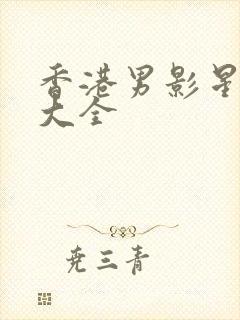 香港男影星
大全
尧三青